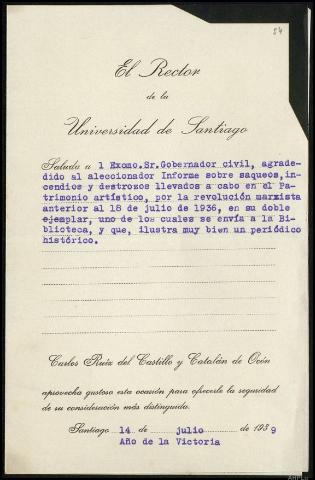 84
El Rector
de la
Universidad de Santiago
Saluda a l Excmo.Sr.Gobernador civil, agrade-
dido al aleccionador Informe sobre saqueos,in-
cendios y destrozos llevados a cabo en el Pa-
trimonio artístico, por la revolución marxista
anterior al 18 de julio de 1936, en su doble
ejemplar, uno de los cuales se envía a la Bi-
blioteca, y que, ilustra muy bien un periódico
histórico.
Carlos Ruiz del Castillo y Catalán de Ocón
aprovecha gustoso esta ocasión para ofrecerle la seguridad
de su consideración más distinguida.
Santiago 14 de julio de 1939
Año de la Victoria
AHPLu